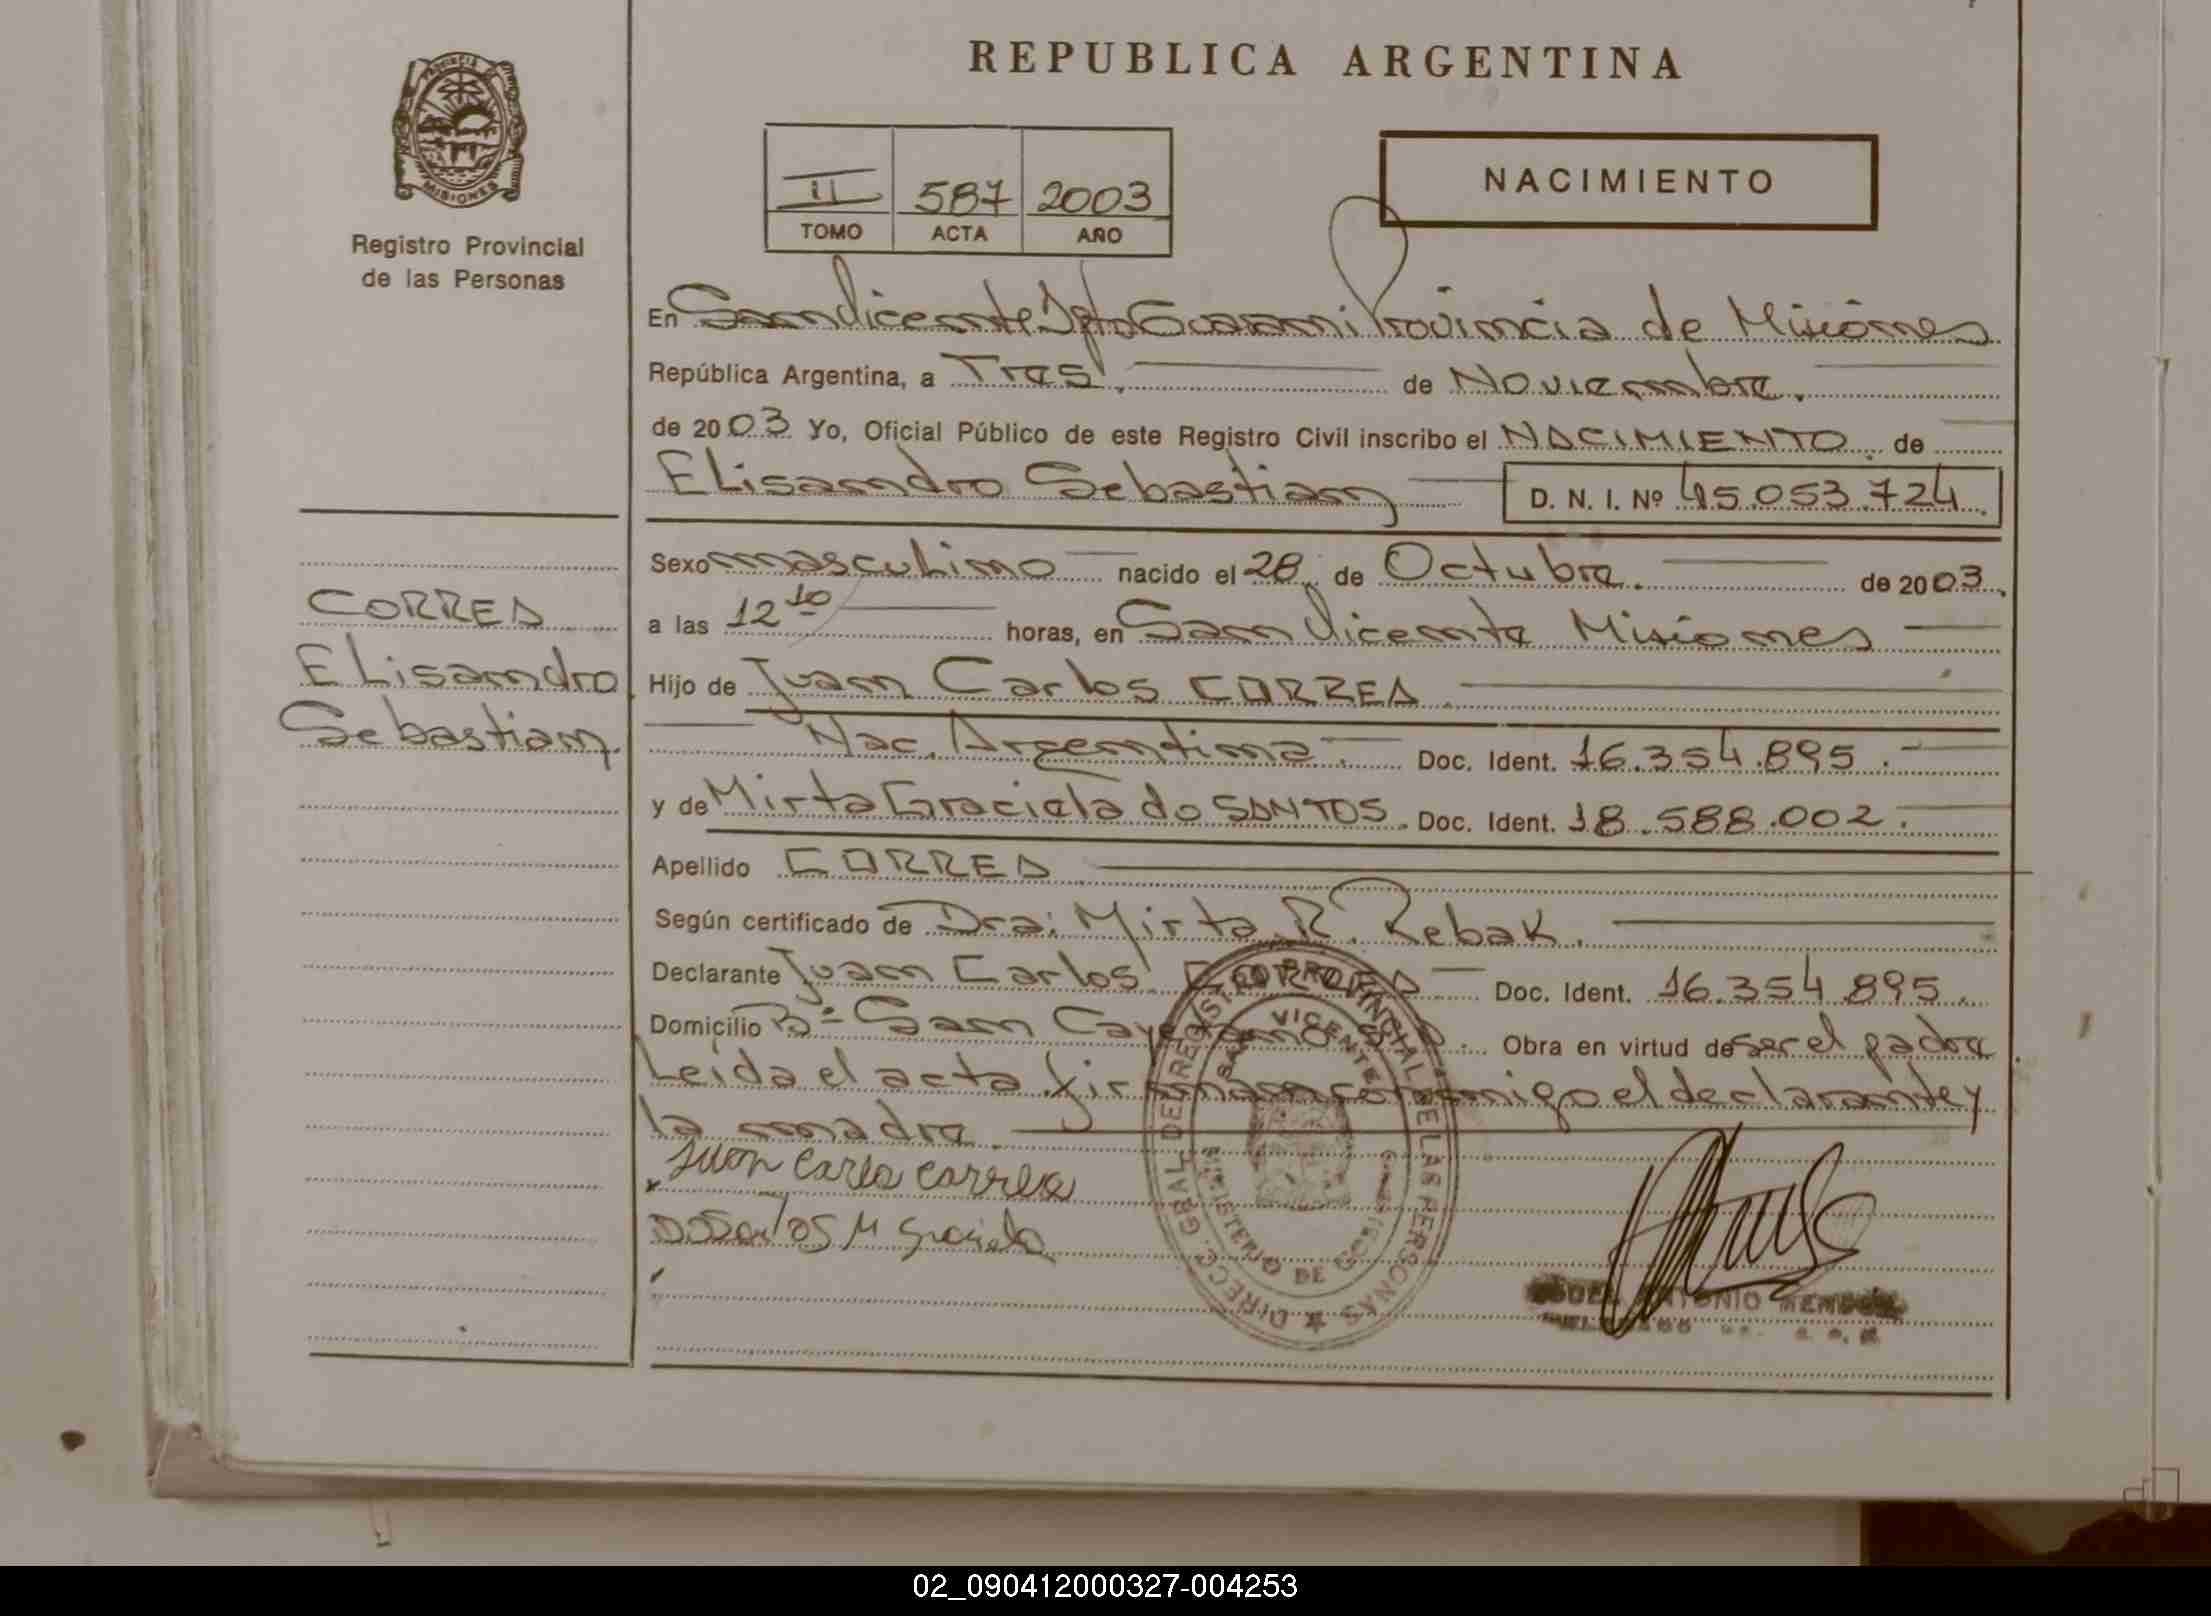 REPUBLICA ARGENTINA
PROVINCIA DE MISIONES
Registro Provincial
de las Personas
II 587 2003
TOMO ACTA AÑO
NACIMIENTO
En San Vicente Dpto Guarani Provincia de Misiones
República Argentina, a Tres. de Noviembre.
de 2003 Yo, Oficial Público de este Registro Civil inscribo el NACIMIENTO de
Elisandro Sebastian D. N. I. Nº 45.053.724.
CORREA
Elisandro
Sebastian.
Sexo masculino nacido el 28 de Octubre. de 2003.
a las 12 10 horas, en San Vicente Misiones
Hijo de Juan Carlos CORREA.
Nac. Argentina.- Doc. Ident. 16.354.895.-
y de Mirta Graciela do SANTOS. Doc. Ident. 18.588.002.-
Apellido CORREA
Según certificado de Dra: Mirta R. Rebak.
Declarante Juan Carlos CORREA Doc. Ident. 16.354.895.
Domicilio Bº San Cayetano Obra en virtud de ser el padre
Leida el acta firman conmigo el declarante y
la madre.
Juan Carlos Correa
Dosantos M Graciela
DIRECC. GRAL. DE REGISTRO PROVINCIAL DE LAS PERSONAS
SAN VICENTE
MINISTERIO DE GOBIERNO
ANTONIO
02_090412000327-004253